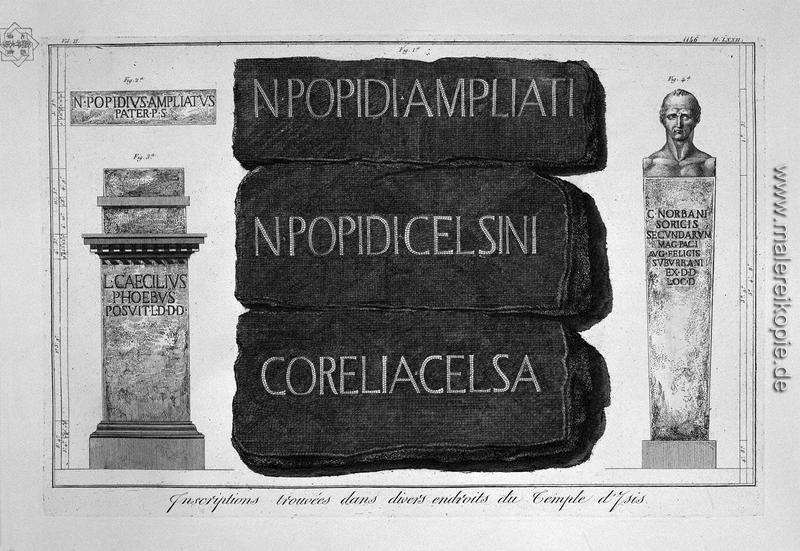 Vol. II.
1146 Pl. LXXII.
Fig. 1ª
Fig. 2ª
N·POPIDIVS·AMPLIATVS
PATER·P·S
Fig. 3ª
L·CAECILIVS
PHOEBVS
POSVIT·L·D·D·D·
N·POPIDI·AMPLIATI
N·POPIDI·CELSINI
CORELIACELSA
Fig. 4ª
C·NORBANI
SORICIS
SECVNDARVM
MAG·PAGI
AVG·FELICIS
SVBVRBANI
EX·D·D
LOC·D
Inscriptions trouvées dans divers endroits du Temple d'Isis.
www.malereikopie.de